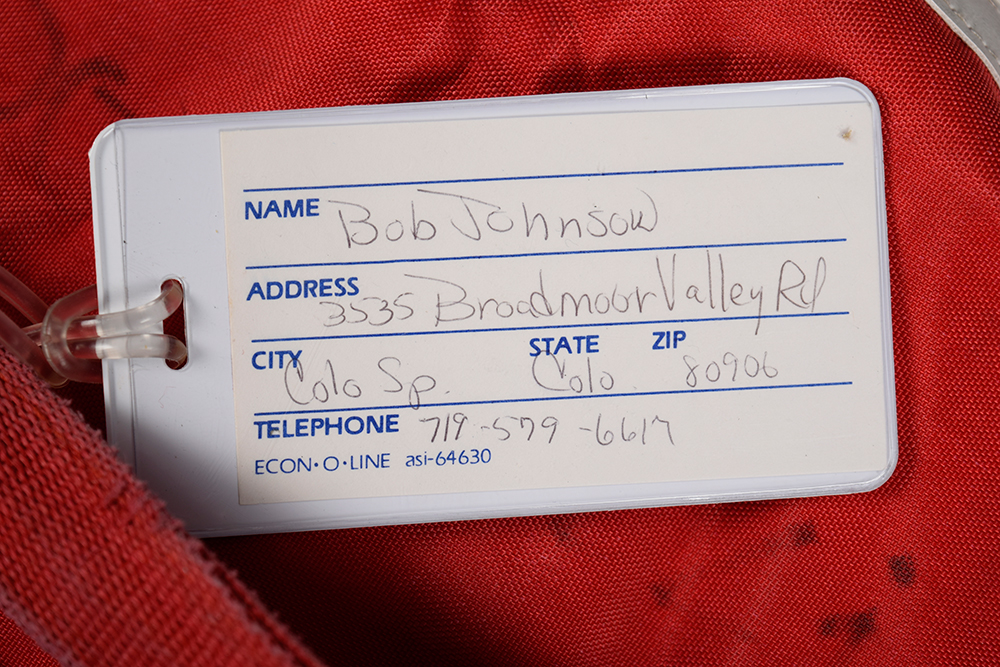 NAME Bob Johnson
ADDRESS 3535 Broadmoor Valley Rd
CITY Colo Sp. STATE Colo. ZIP 80906
TELEPHONE 719-579-6617
ECON·O·LINE asi-64630